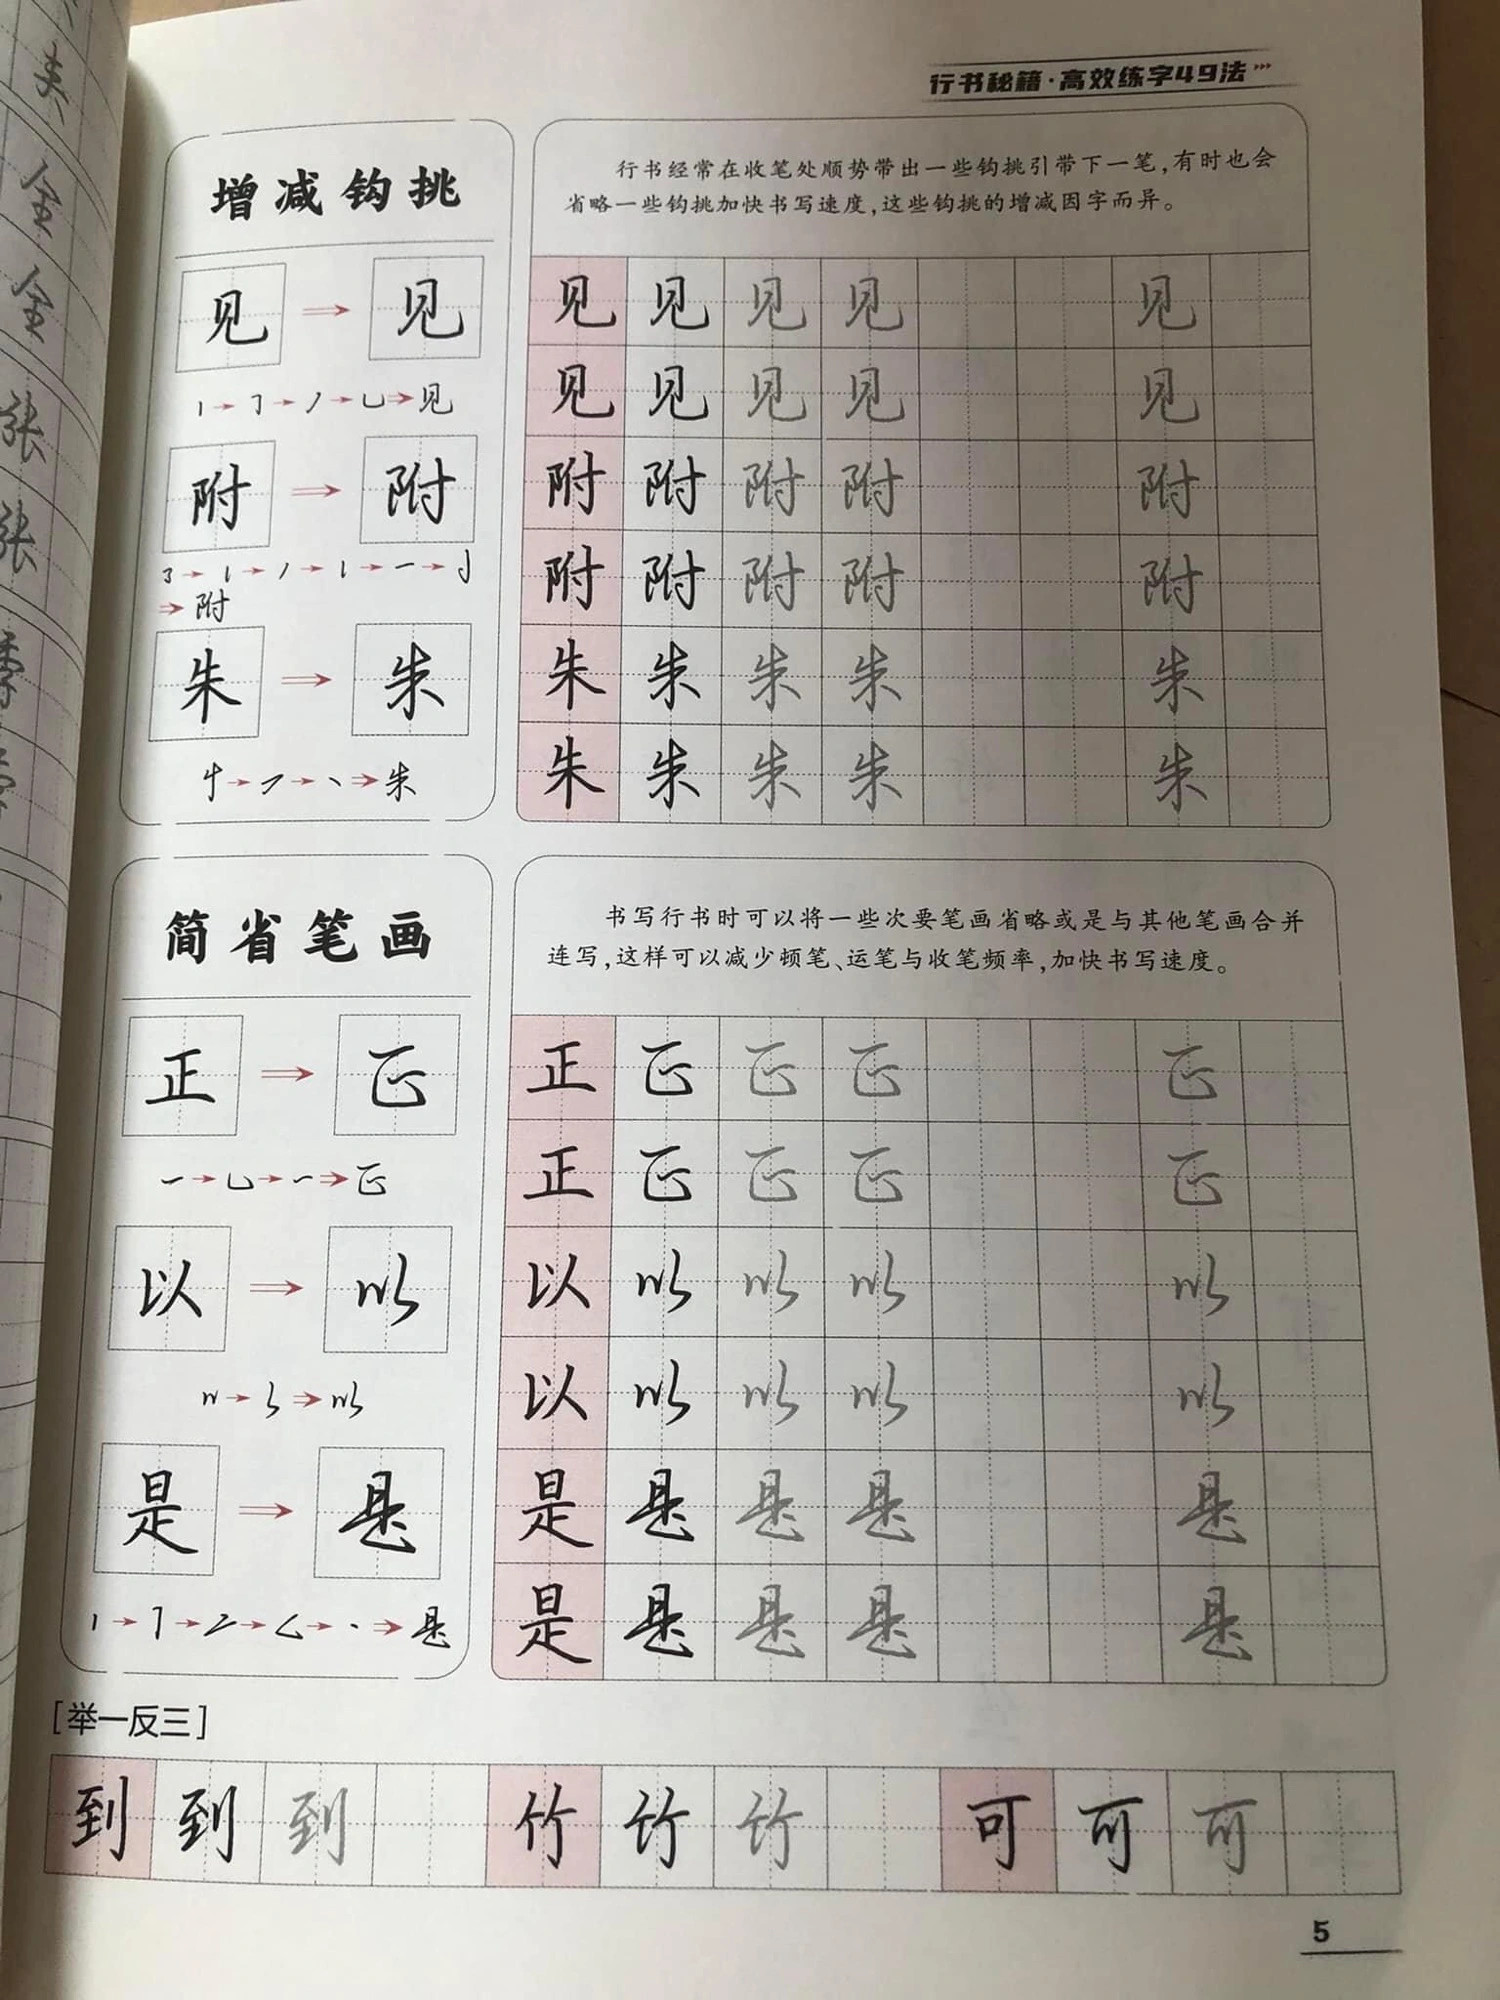 夹
全
全
张
张
季
行书秘籍·高效练字49法
增减钩挑
行书经常在收笔处顺势带出一些钩挑引带下一笔,有时也会
省略一些钩挑加快书写速度,这些钩挑的增减因字而异。
见 → 见
见
附 → 附
附
朱 → 朱
朱
见 见 见 见 见
见 见 见 见 见
附 附 附 附 附
附 附 附 附 附
朱 朱 朱 朱 朱
朱 朱 朱 朱 朱
简省笔画
书写行书时可以将一些次要笔画省略或是与其他笔画合并
连写,这样可以减少顿笔、运笔与收笔频率,加快书写速度。
正 → 正
正
以 → 以
以
是 → 是
是
正 正 正 正 正
正 正 正 正 正
以 以 以 以 以
以 以 以 以 以
是 是 是 是 是
是 是 是 是 是
[举一反三]
到 到 到 竹 竹 竹 可 可 可
5